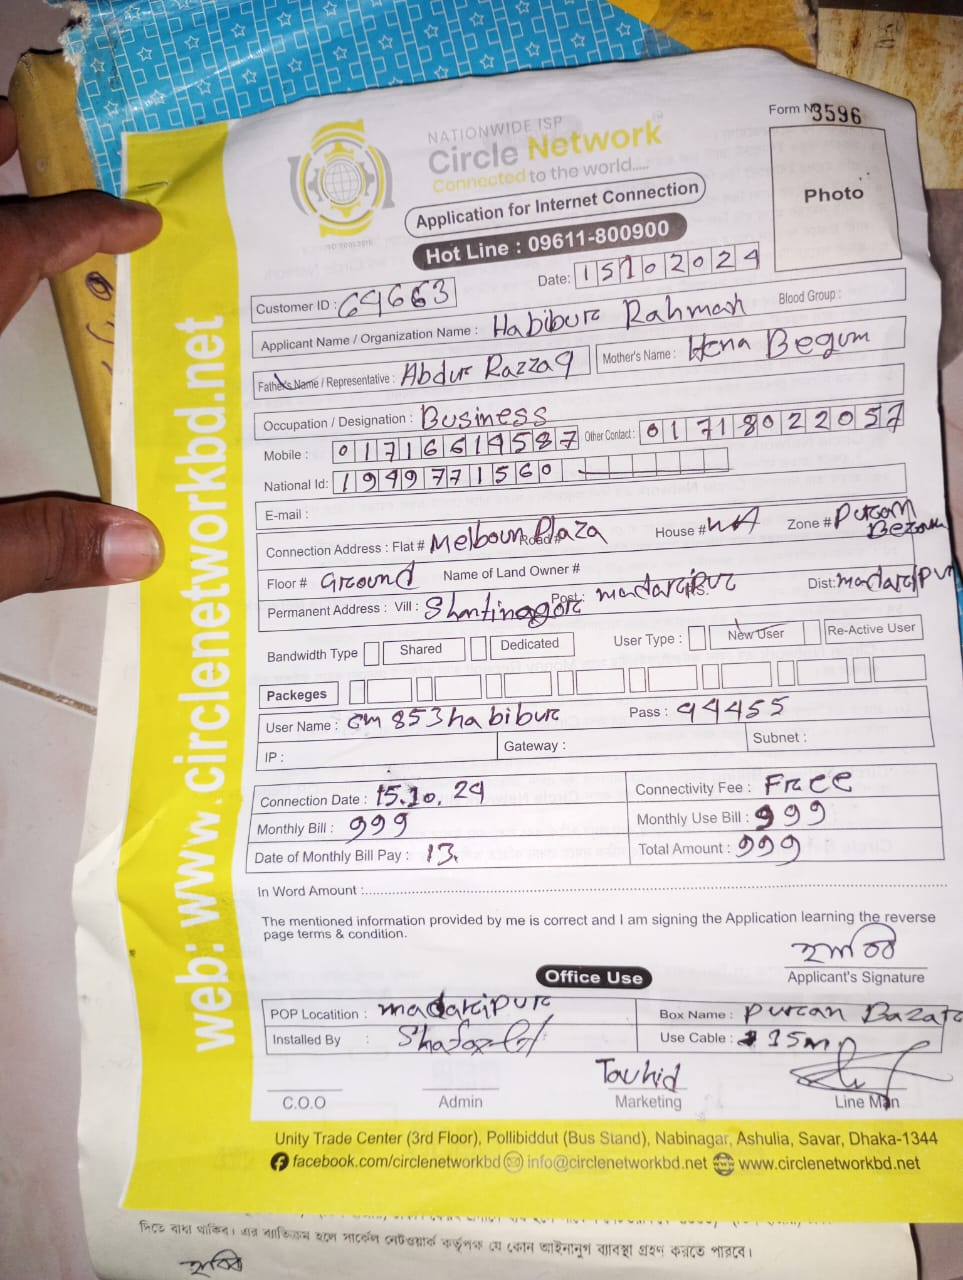 Form No 3596
NATIONWIDE ISP
Circle Network
Connected to the world.....
Photo
Application for Internet Connection
Hot Line : 09611-800900
ISO 9001:2015
Date: 15102024
Customer ID : 69663
Blood Group :
Applicant Name / Organization Name : Habibur Rahman
Father's Name / Representative : Abdur Razzaq Mother's Name : Hena Begum
Occupation / Designation : Business
Mobile : 01716619587 Other Contact : 01718022057
National Id: 1949771560
E-mail :
Connection Address : Flat # Melboun Plaza Road # House # NA Zone # Puran Bazar
Floor # Ground Name of Land Owner #
Permanent Address : Vill : Shantinagor Post : madaripur P.S: Dist: madaripur
Bandwidth Type Shared Dedicated User Type : New User Re-Active User
Packeges
User Name : cm853habibur Pass : 44455
IP : Gateway : Subnet :
Connection Date : 15.10.24 Connectivity Fee : Free
Monthly Bill : 999 Monthly Use Bill : 999
Date of Monthly Bill Pay : 13. Total Amount : 999
In Word Amount :
The mentioned information provided by me is correct and I am signing the Application learning the reverse
page terms & condition.
হাবিব
Applicant's Signature
Office Use
POP Locatition : madaripur Box Name : Puran Bazar
Installed By : Use Cable : 35m
Tauhid
C.O.O Admin Marketing Line Man
Unity Trade Center (3rd Floor), Pollibiddut (Bus Stand), Nabinagar, Ashulia, Savar, Dhaka-1344
facebook.com/circlenetworkbd info@circlenetworkbd.net www.circlenetworkbd.net
web: www.circlenetworkbd.net
দিতে বাধ্য থাকিব। এর ব্যতিক্রম হলে সার্কেল নেটওয়ার্ক কর্তৃপক্ষ যে কোন আইনানুগ ব্যবস্থা গ্রহণ করতে পারবে।
হাবিব